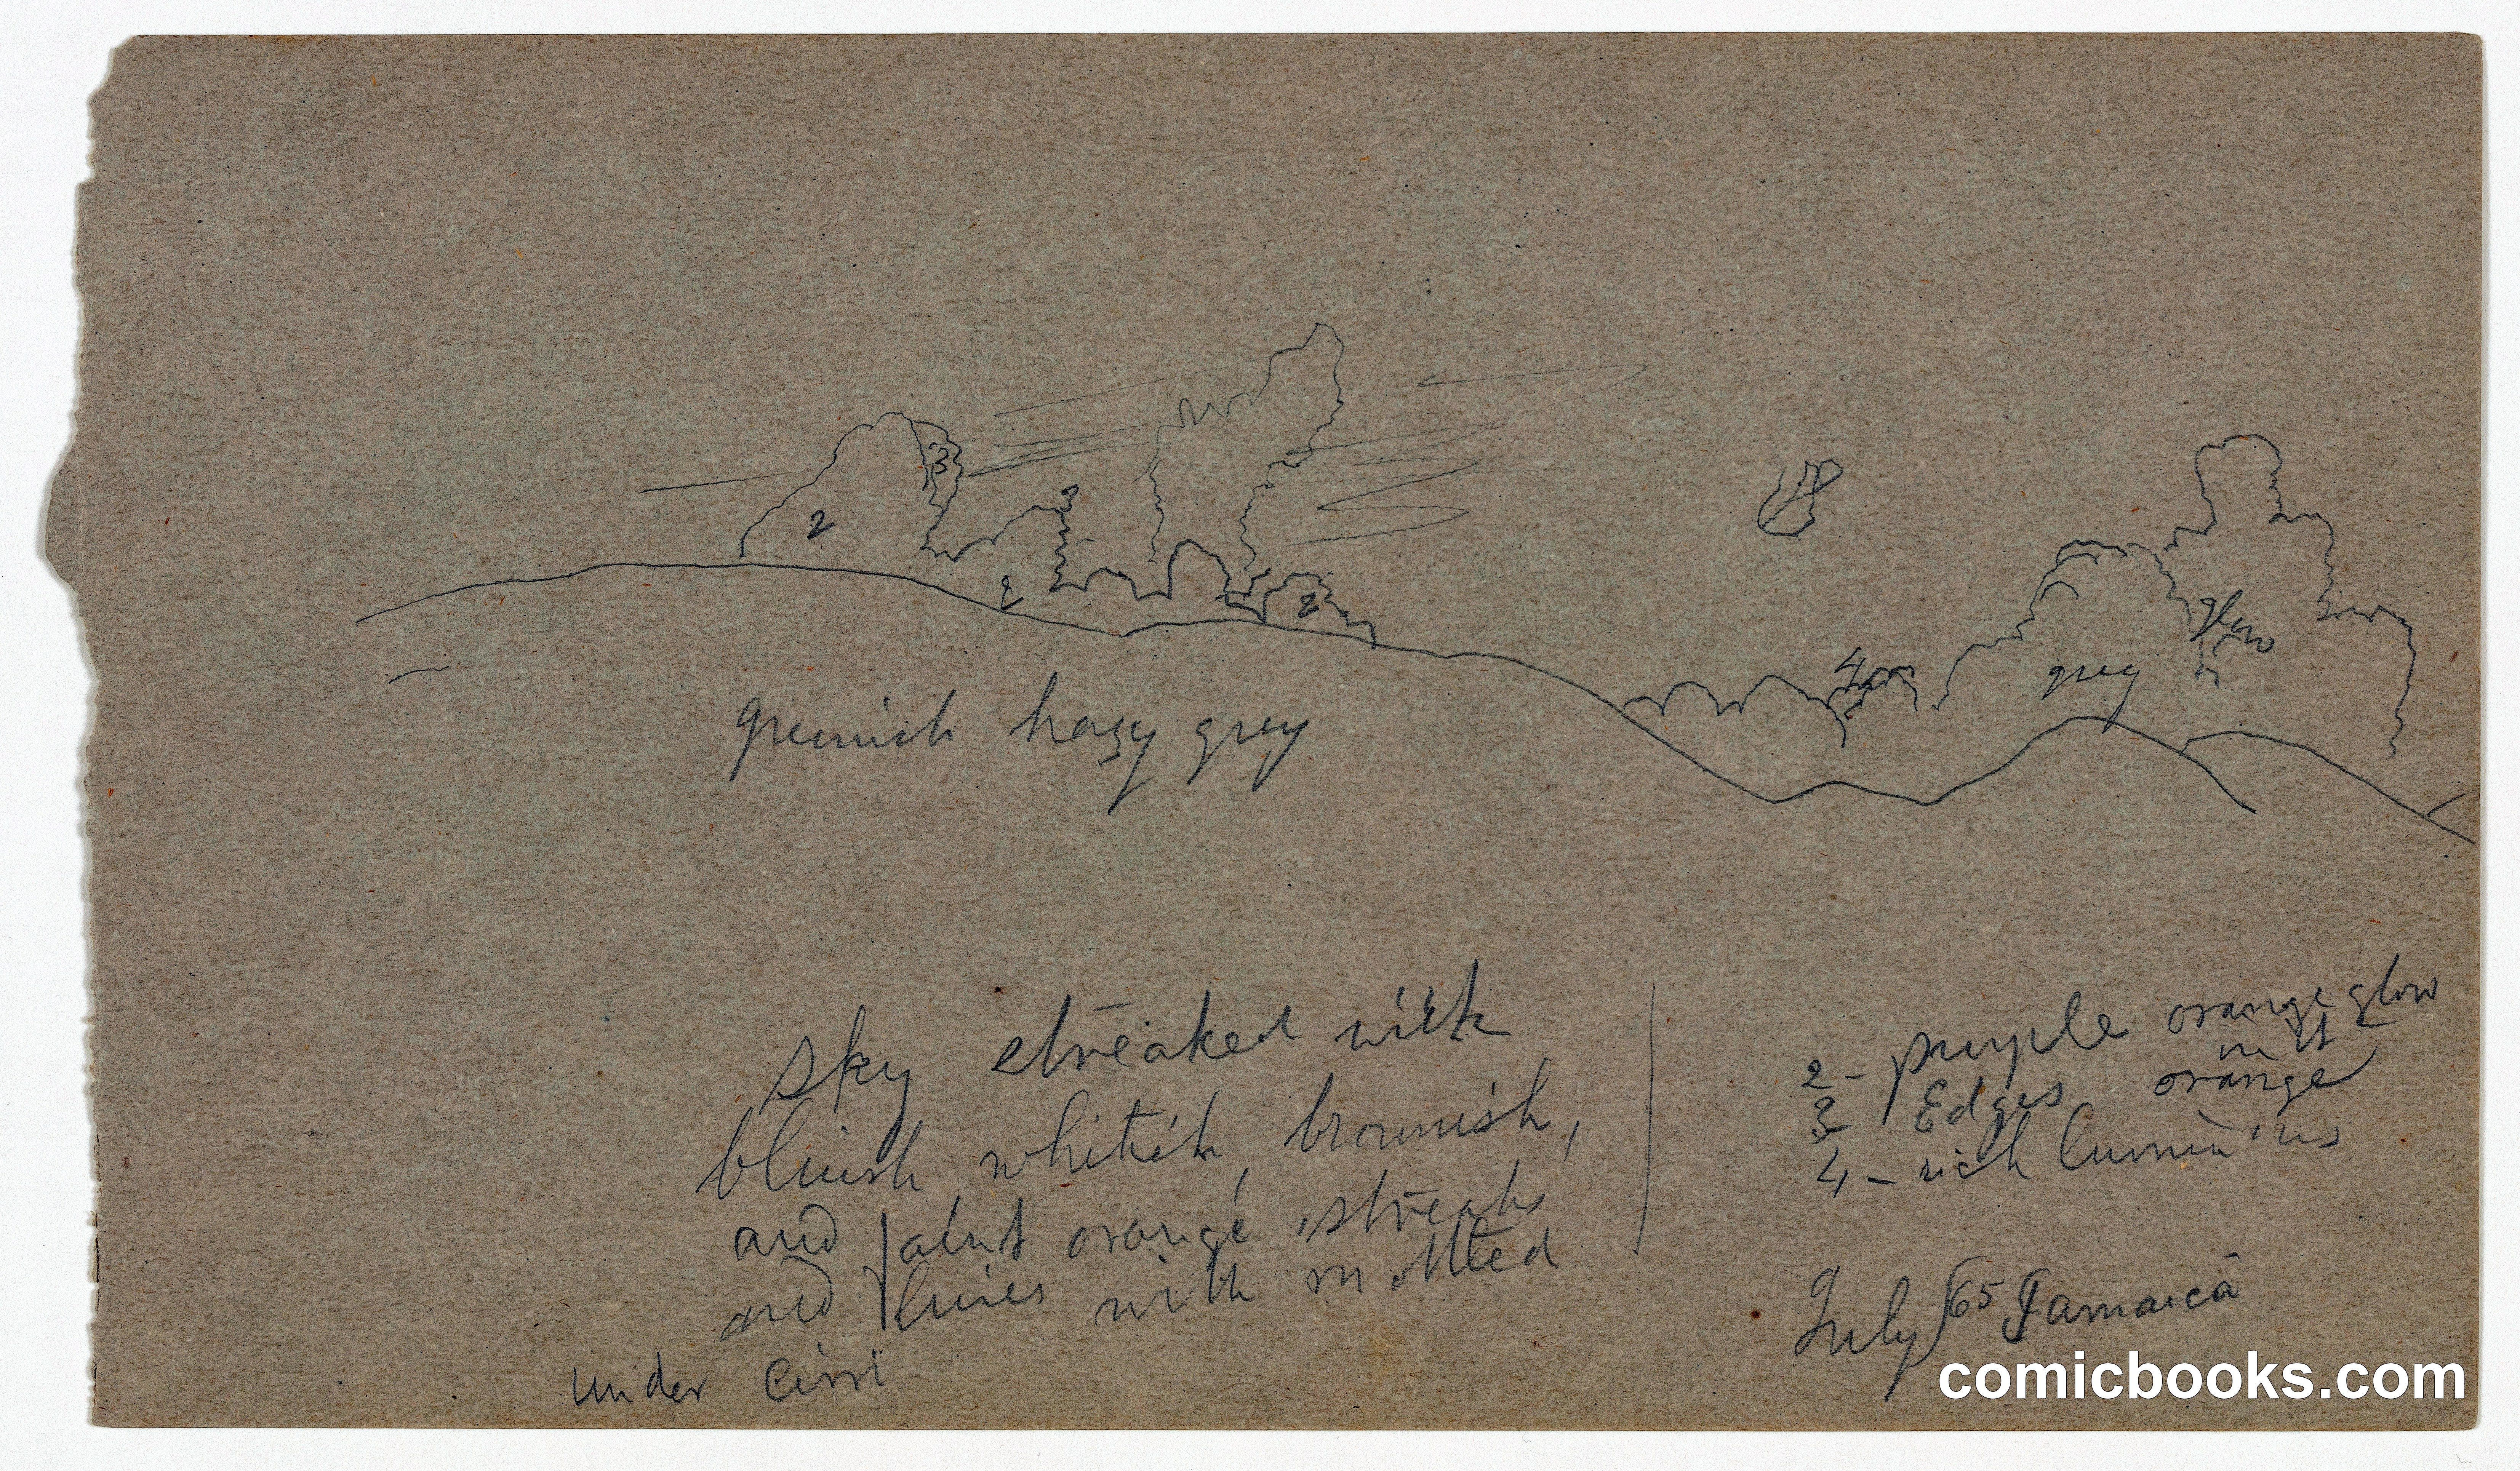 3
2
2
2
4
glow
grey
greenish hazy grey
sky streaked with
bluish whitish, brownish,
and faint orange streaks
and lines with mottled
under Cirri
2 - purple orange glow
on it
3 Edges orange
4 - rich luminous
July / 65 Jamaica
comicbooks.com